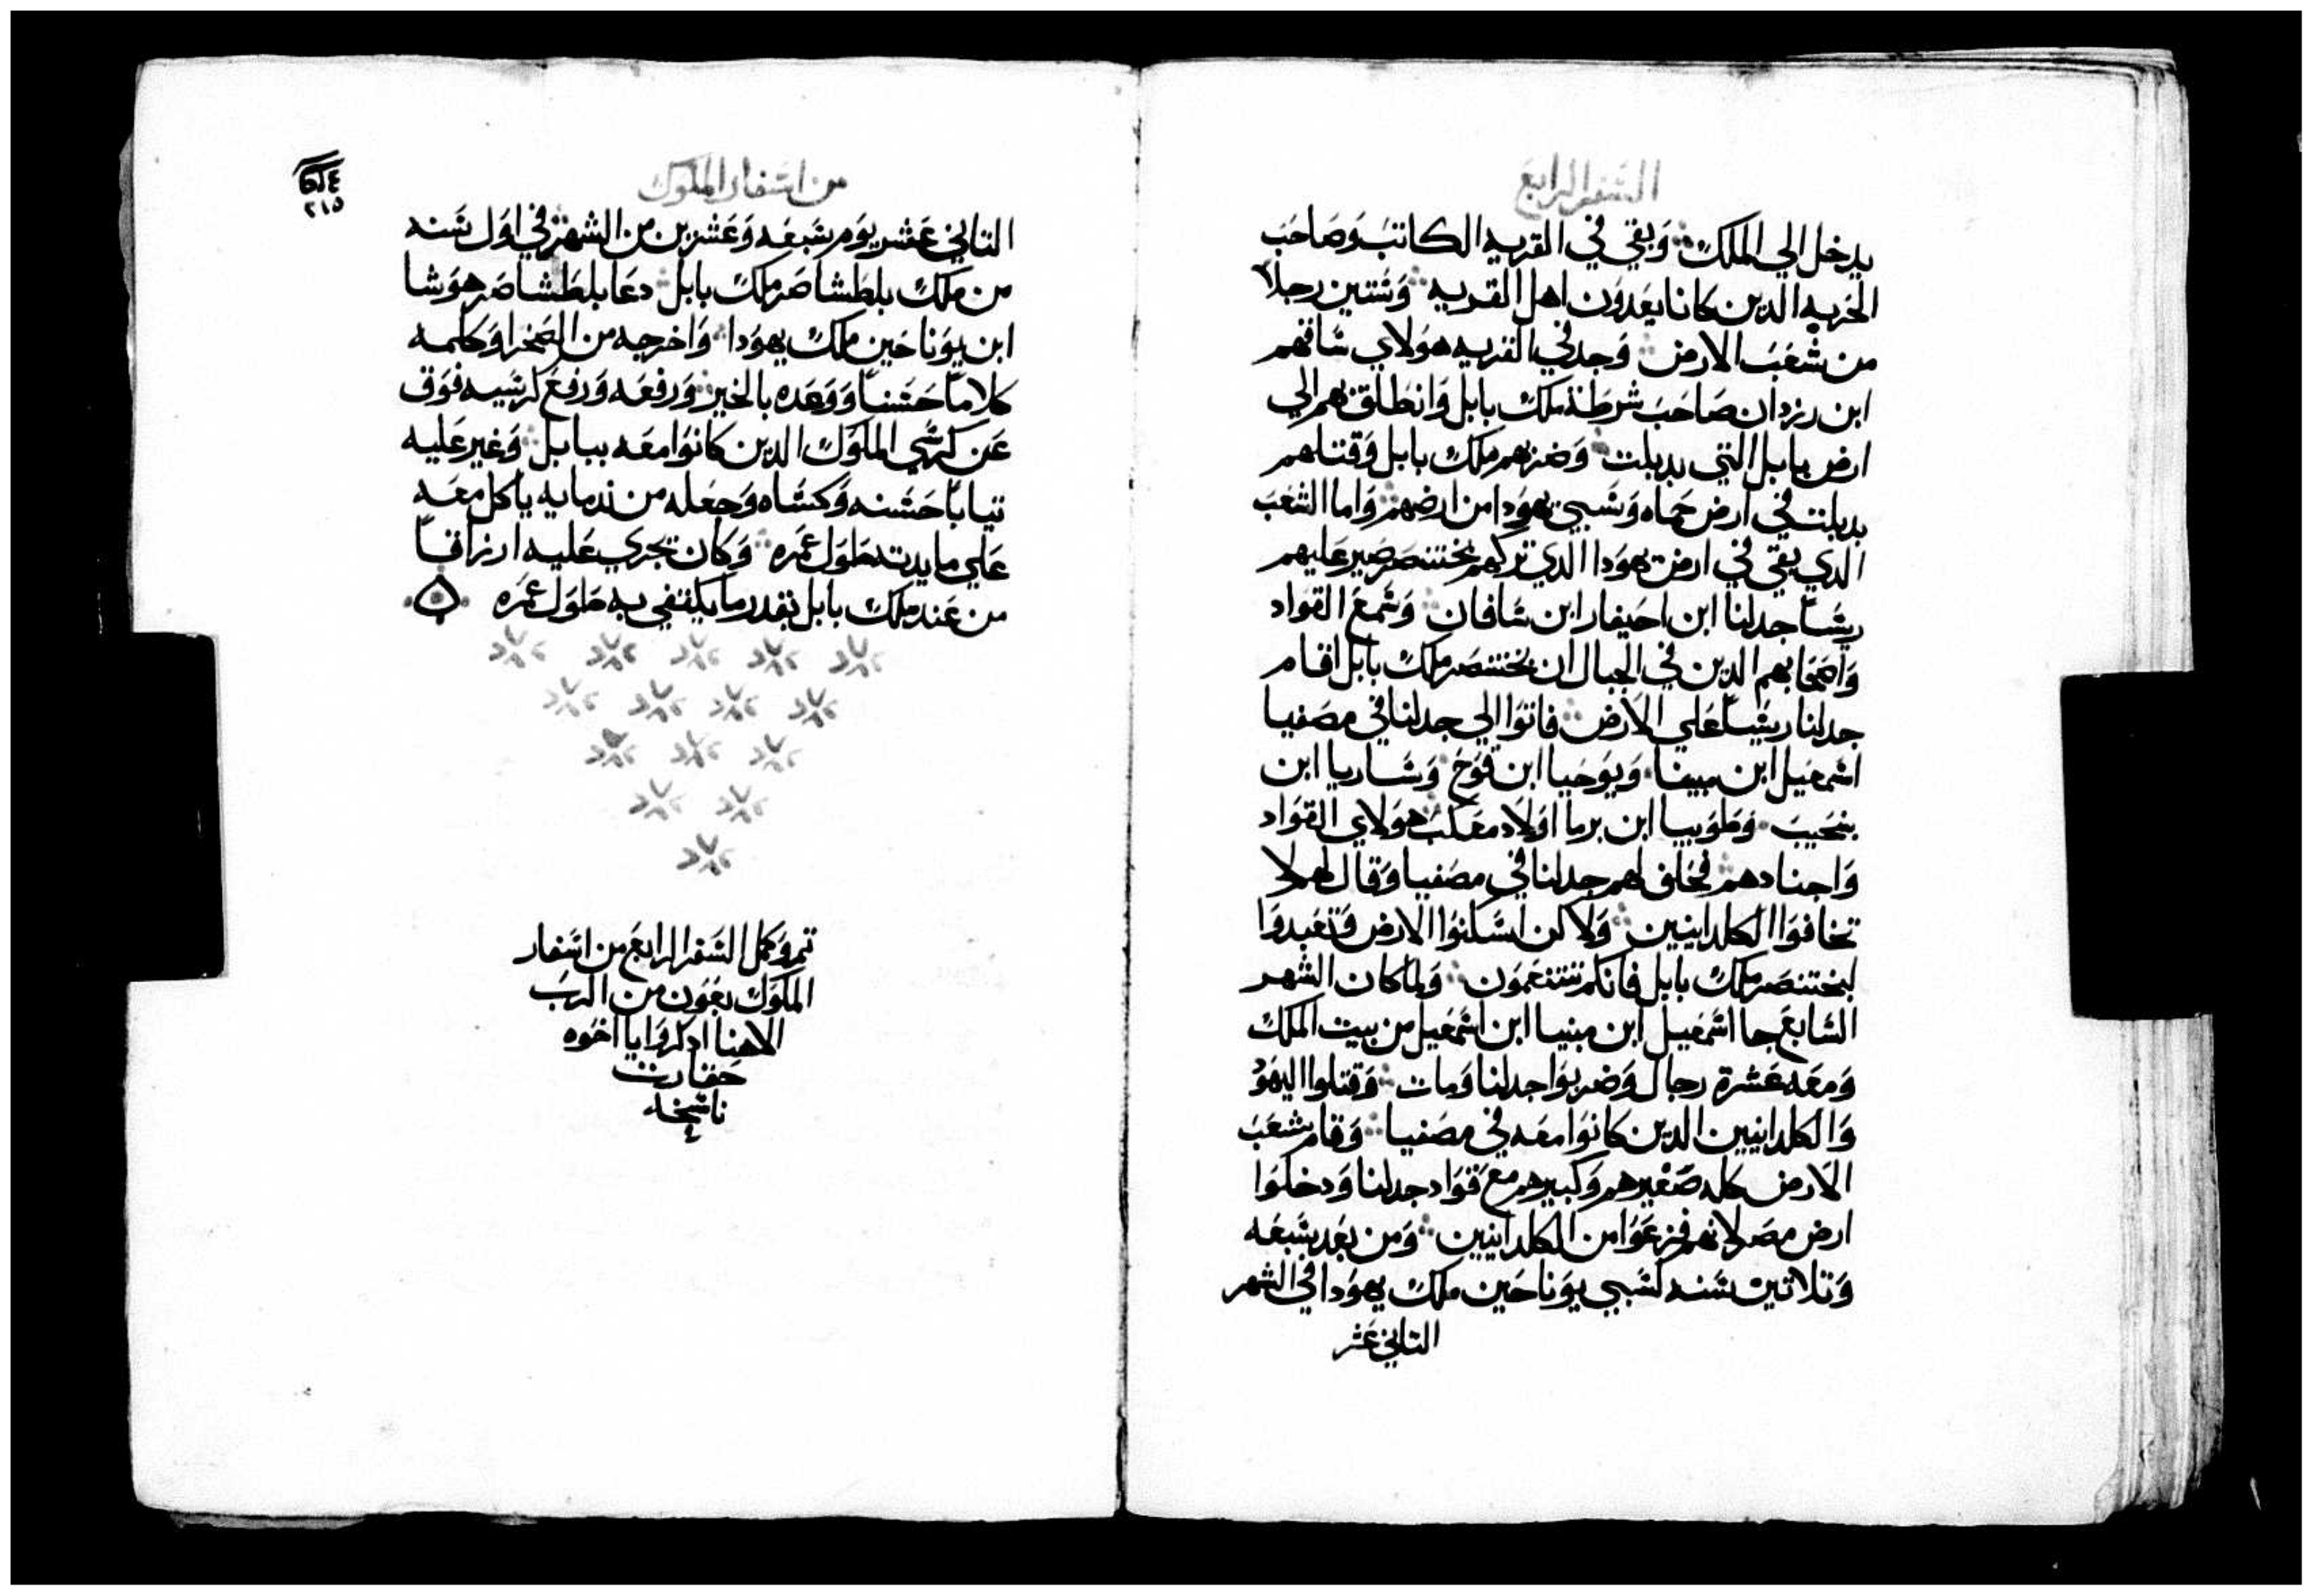 السفر الرابع
يدخل الي الملك وَبقي في القريه الكاتب وَصَاحبَ
الحَربه الدين كانا يعَدوَن اهل القريه وَستين رجلاً
من شعَبَ الارض وَجد في القريه هوَلاي سَاقهم
ابن رزدان صَاحبَ شرطة ملك بابل وَانطلق بهم الي
ارض بابل التي بدبلت وَضربهم ملك بابل وَقتلهم
بدبلت في ارض حَماه وَسَبي يهوَدا من ارضهم وَاما الشعَبَ
الدي بقي في ارض يهوَدا الدي تركهم بختنصر صَير عَليهم
ريسَاً جدلنا ابن احيفار ابن سَافان وَسَمعَ القواد
وَاصَحَابهم الدين في الجبال ان بختنصر ملك بابل اقام
جدلنا ريسَاً عَلي الاَرض فاتوَا الي جدلنا في مصَفيا
اسَمعَيل ابن مينا وَيوَحيا ابن قوَح وَسَاريا ابن
بنحَيبَ وَطوَبيا ابن برما اوَلاد معَكبَ هوَلاي القوَاد
وَاجنادهم فحَلف لهم جدلنا في مصَفيا وَقال لهم لا
تخافوَا الكلدانيين وَلاكن اسَكنوَا الارض وَتعَبدوَا
لبختنصَر ملك بابل فانكم ستنعَموَن وَلما كان الشهر
السَابعَ جا اسَمعَيل ابن مينيا ابن اسَمعَيل من بيت الملك
وَمعَه عَشرة رجال وَضربوَا جدلنا وَمات وَقتلوا اليهوَد
وَالكلدانيين الدين كانوَا معَه في مصَفيا وَقام شعَبَ
الاَرض كله صَغيرهم وَكبيرهم مع قوَاد جدلنا وَدخلوَا
ارض مصَر لانهم فزعَوَا من الكلدانيين وَمن بعَد سَبعَه
وَتلاتين سَنه لسَبي يوَناحَين ملك يهوَدا في الشهر
التاني عَشر
من اسَفار الملوَك
٢١٥
التاني عَشر يوَم سَبعَه وَعَشرين من الشهر في اوَل سَنه
من ملك بلطشاصَر ملك بابل دعَا بلطشاصَر هوَشا
ابن يوَناحَين ملك يهوَدا وَاخرجه من الصَخرا وَكلمه
كلاماً حَسَناً وَوَعَده بالخير وَرفعَه وَرفعَ كرسَيه فوَق
عَن كرسَي الملوَك الدين كانوَا معَه ببابل وَغير عَليه
تياباً حَسَنه وَكسَاه وَجعَله من ندمايه ياكل معَه
عَلي مايدته طوَل عَمَره وَكان تجري عَليه ارزاقاً
من عَند ملك بابل بقدر ما يكتفي به طوَل عَمَره
تم وَكمل السَفر الرابعَ من اسَفار
الملوَك بعَوَن من الربَ
الاهنا ادكروَا يا اخوَه
حَقارت
ناسَخه